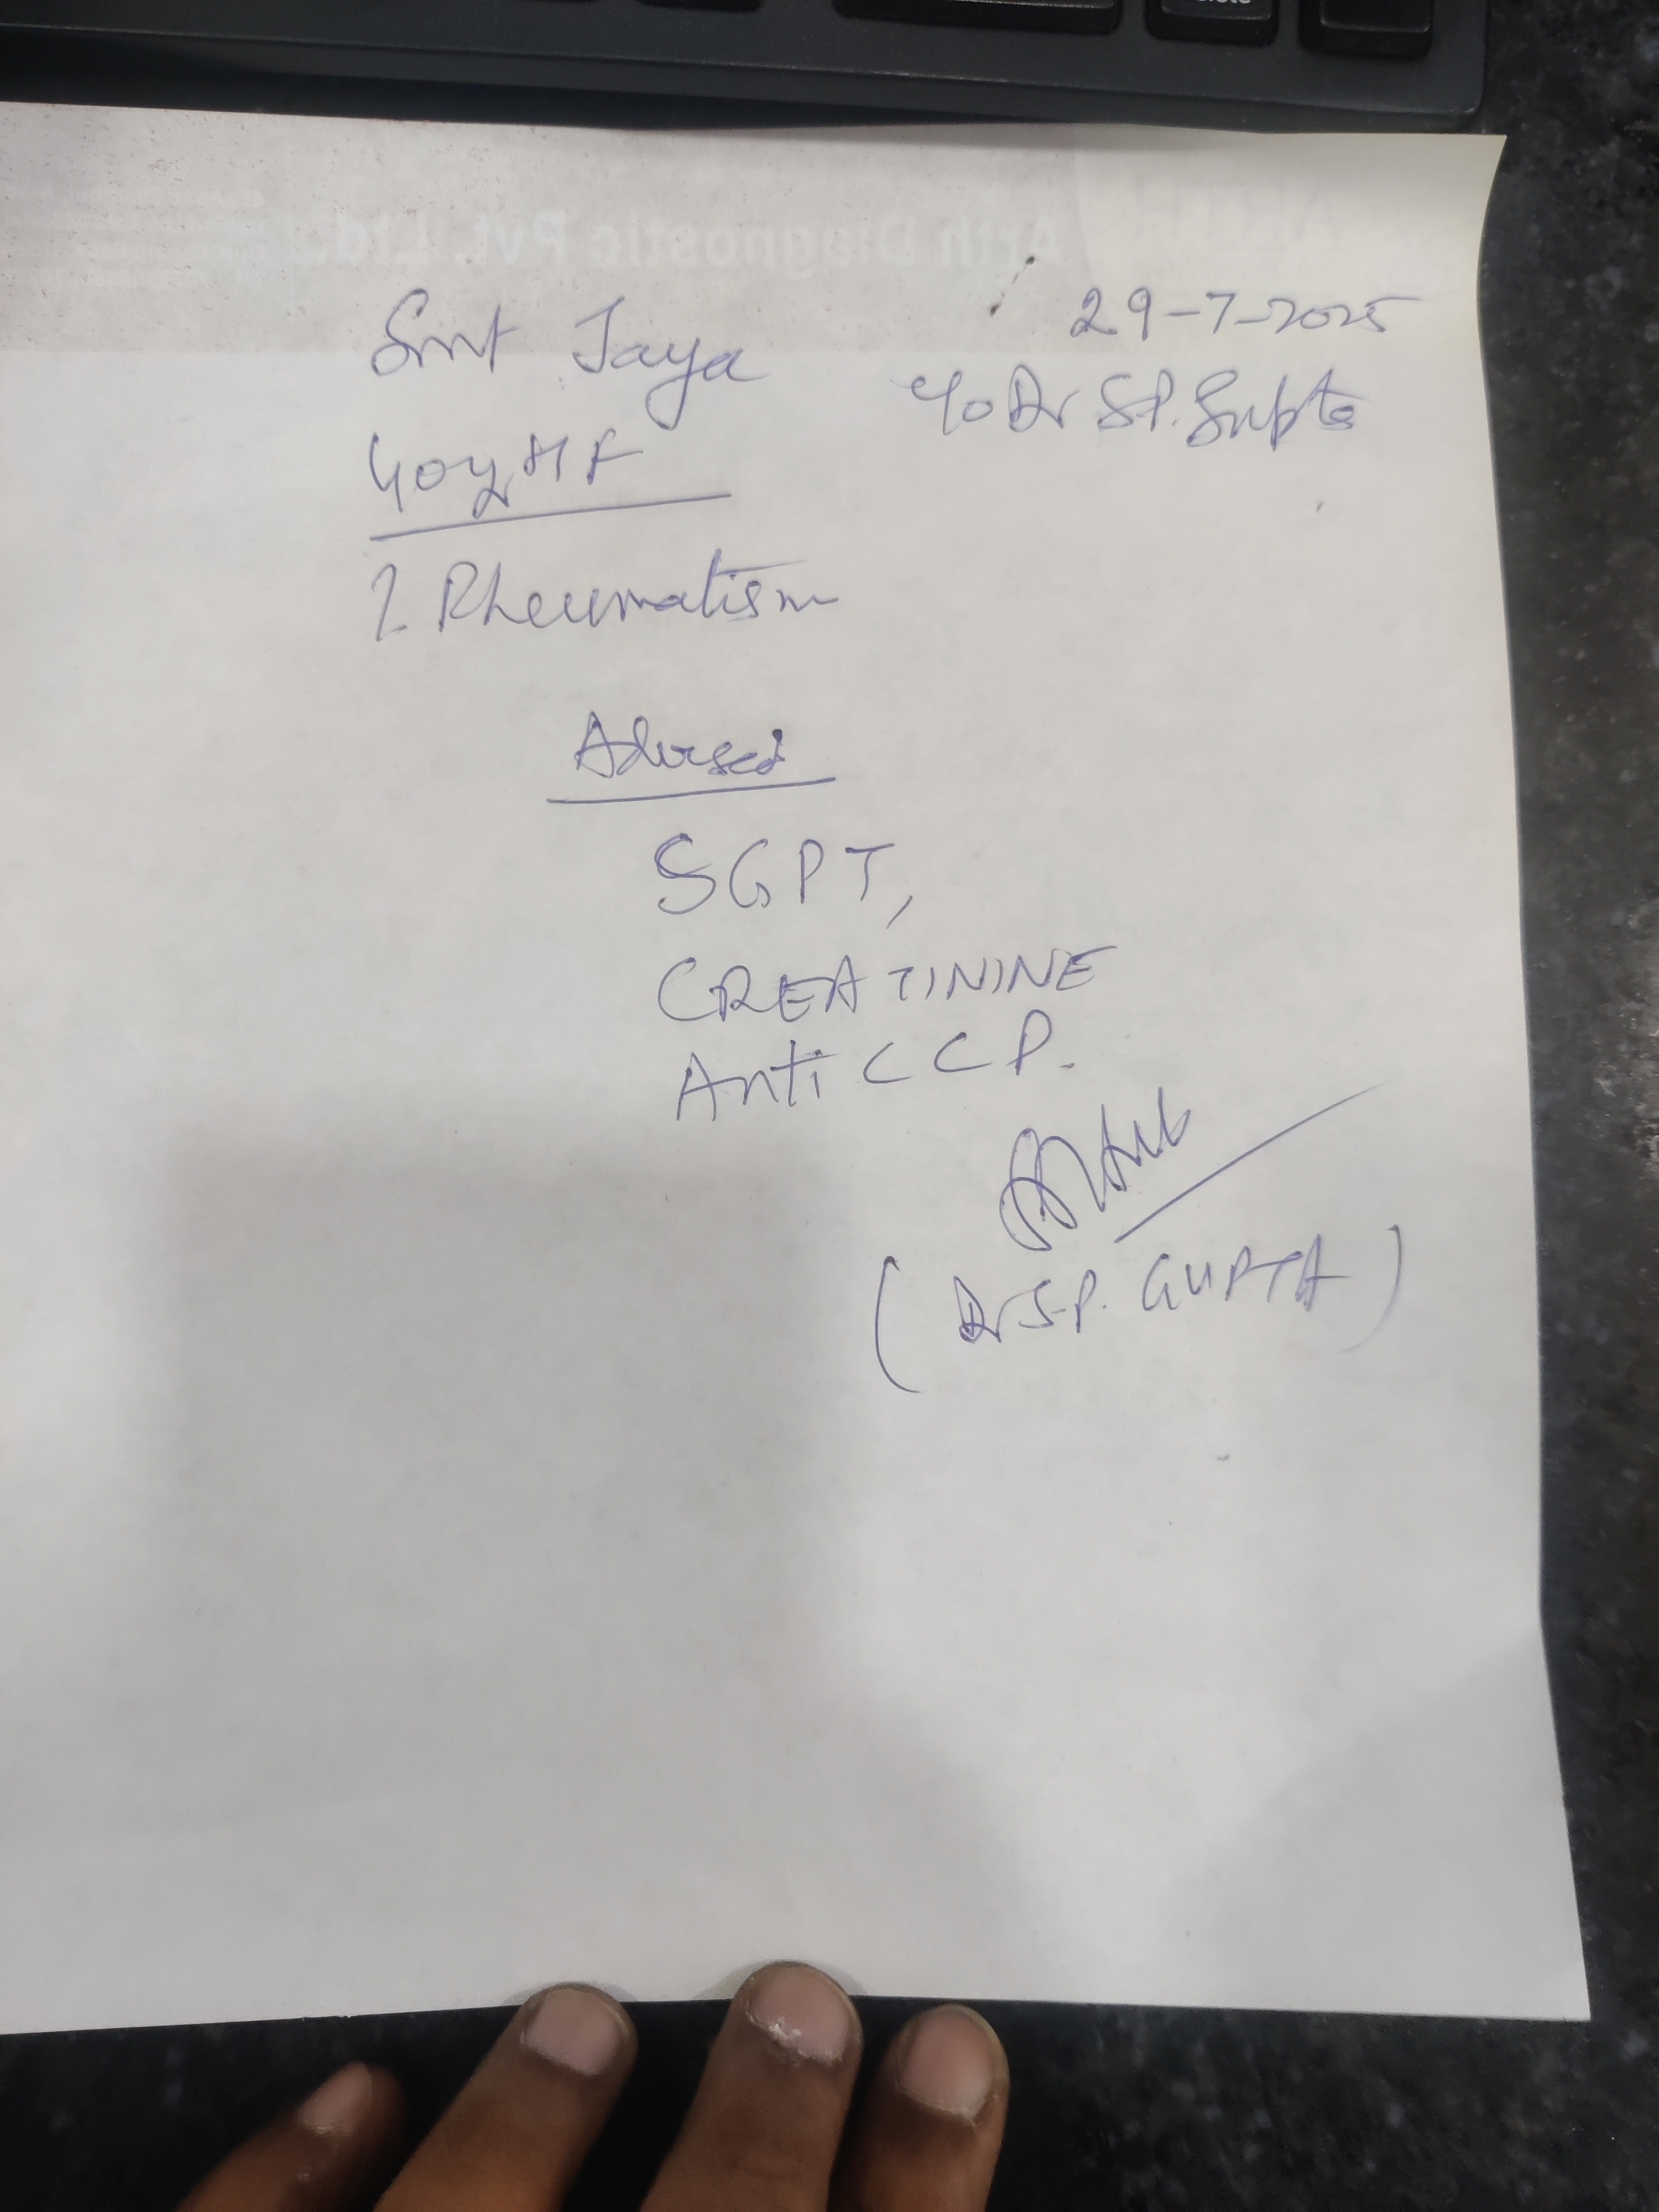 Arth Diagnostic Pvt. Ltd.
Smt Jaya
29-7-2025
40y H F
c/o Dr S.P. Gupta
? Rheumatism
Advised
SGPT,
CREATININE
Anti CCP.
(Dr S.P. GUPTA)